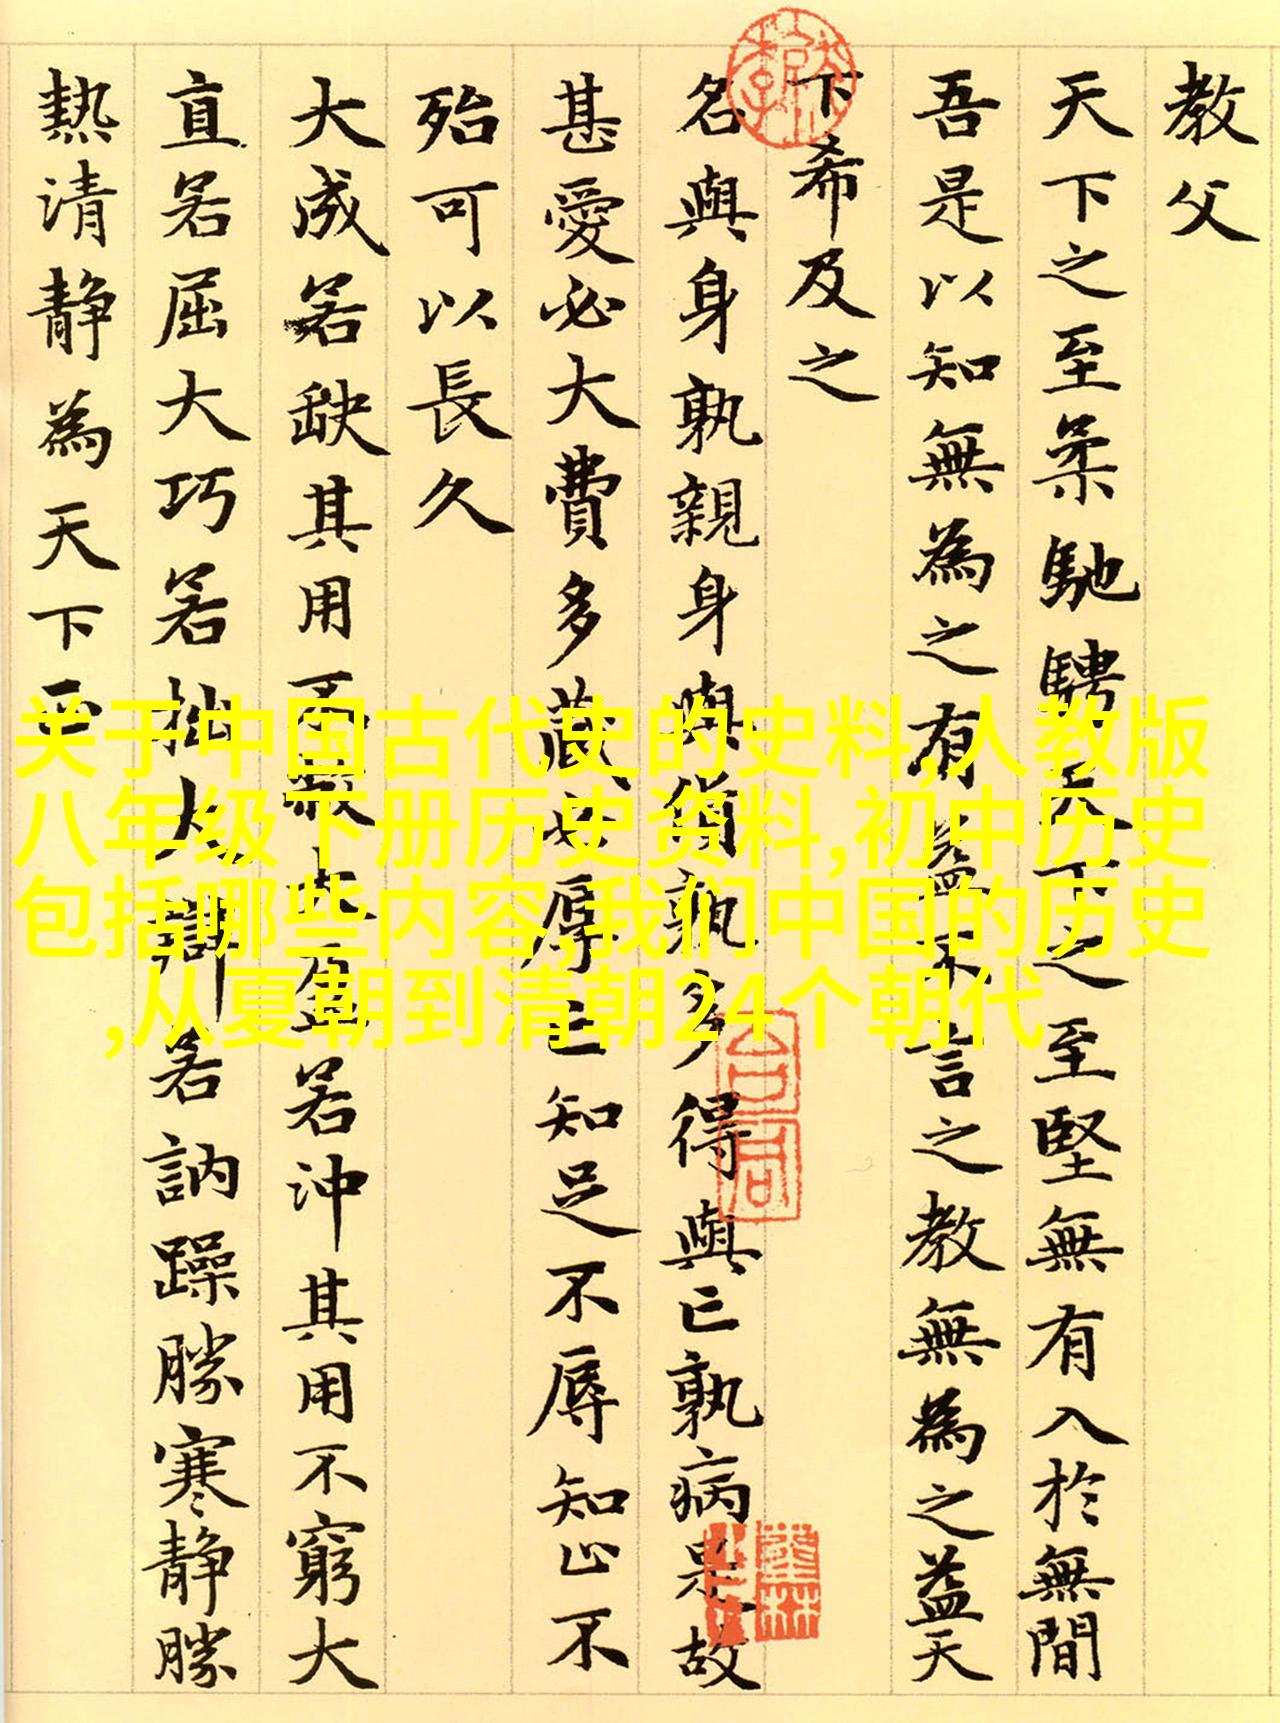 教父
天下之至柔馳騁天下之至堅無有入於無間
吾是以知無為之有益不言之教無為之益天
下希及之
名與身孰親身與貨孰多得與亡孰病是故
甚愛必大費多藏必厚亡知足不辱知止不
殆可以長久
大成若缺其用不敝大盈若沖其用不窮大
直若屈大巧若拙大辯若訥躁勝寒靜勝
熱清靜為天下正
关于中国古代史的史料,人教版
八年级下册历史资料,初中历史
包括哪些内容,我们中国的历史
,从夏朝到清朝24个朝代